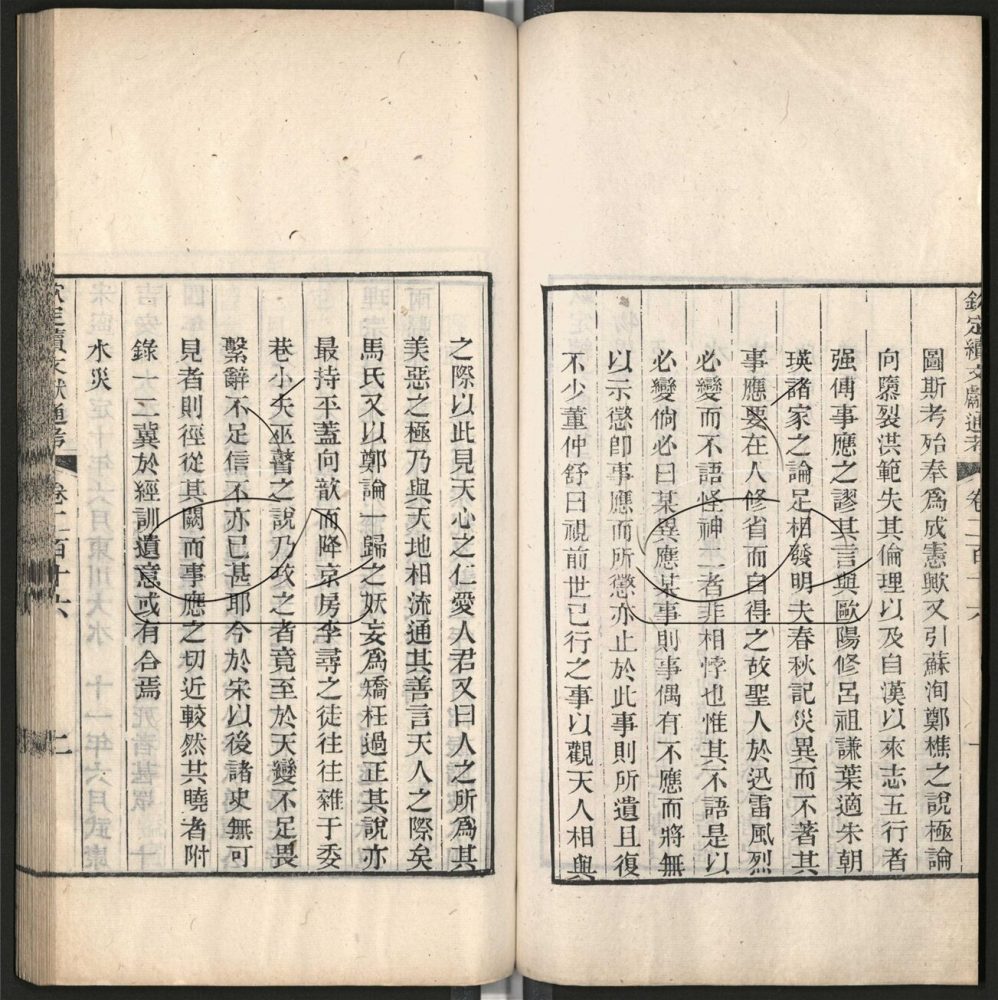 欽定續文獻通考　卷二百十六
圖斯考殆奉爲成憲歟又引蘇洵鄭樵之說極論
向隳裂洪範失其倫理以及自漢以來志五行者
强傅事應之謬其言與歐陽修呂祖謙葉適朱朝
瑛諸家之論足相發明夫春秋記災異而不著其
事應要在人修省而自得之故聖人於迅雷風烈
必變而不語怪神二者非相悖也惟其不語是以
必變倘必曰某異應某事則事偶有不應而將無
以示懲卽事應而所懲亦止於此事則所遺且復
不少董仲舒曰視前世已行之事以觀天人相與
之際以此見天心之仁愛人君又曰人之所爲其
美惡之極乃與天地相流通其善言天人之際矣
馬氏又以鄭論一歸之妖妄爲矯枉過正其說亦
最持平蓋向歆而降京房李尋之徒往往雜于委
巷小夫巫瞽之說乃攻之者竟至於天變不足畏
繫辭不足信不亦已甚耶今於宋以後諸史無可
見者則徑從其闕而事應之切近較然共曉者附
錄一二冀於經訓遺意或有合焉
水災
欽定續文獻通考　卷二百十六